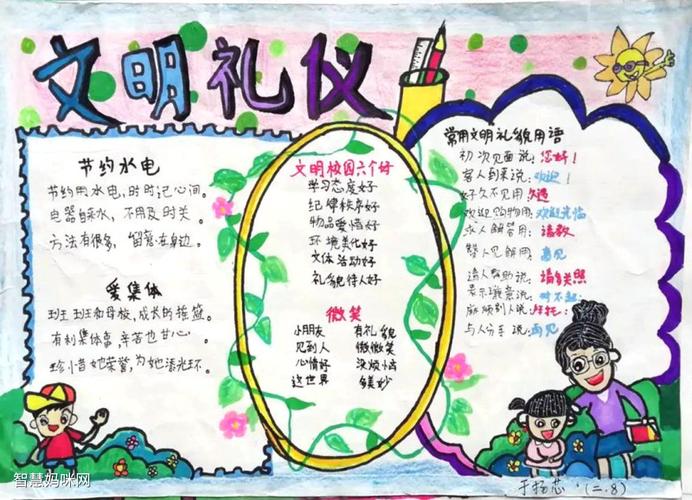 文明礼仪
节约水电
节约用水电,时时记心间。
电器自来水,不用及时关。
方法有很多,留意在身边。
爱集体
班班和母校,成长的摇篮。
有利集体事,辛苦也甘心。
珍惜她荣誉,为她添光环。
文明校园六个好
学习态度好
纪律秩序好
物品爱惜好
环境美化好
文体活动好
礼貌待人好
微笑
小朋友 有礼貌
见到人 微微笑
心情好 没烦恼
这世界 多美妙
常用文明礼貌用语
初次见面说:您好!
客人到来说:欢迎!
好久不见用久违
欢迎购物用:欢迎光临
求人解答用:请教
请人帮助说:请多关照
表示歉意说:对不起
麻烦别人说:拜托
与人分手说:再见
于扬芯 (二.8)
智慧妈咪网